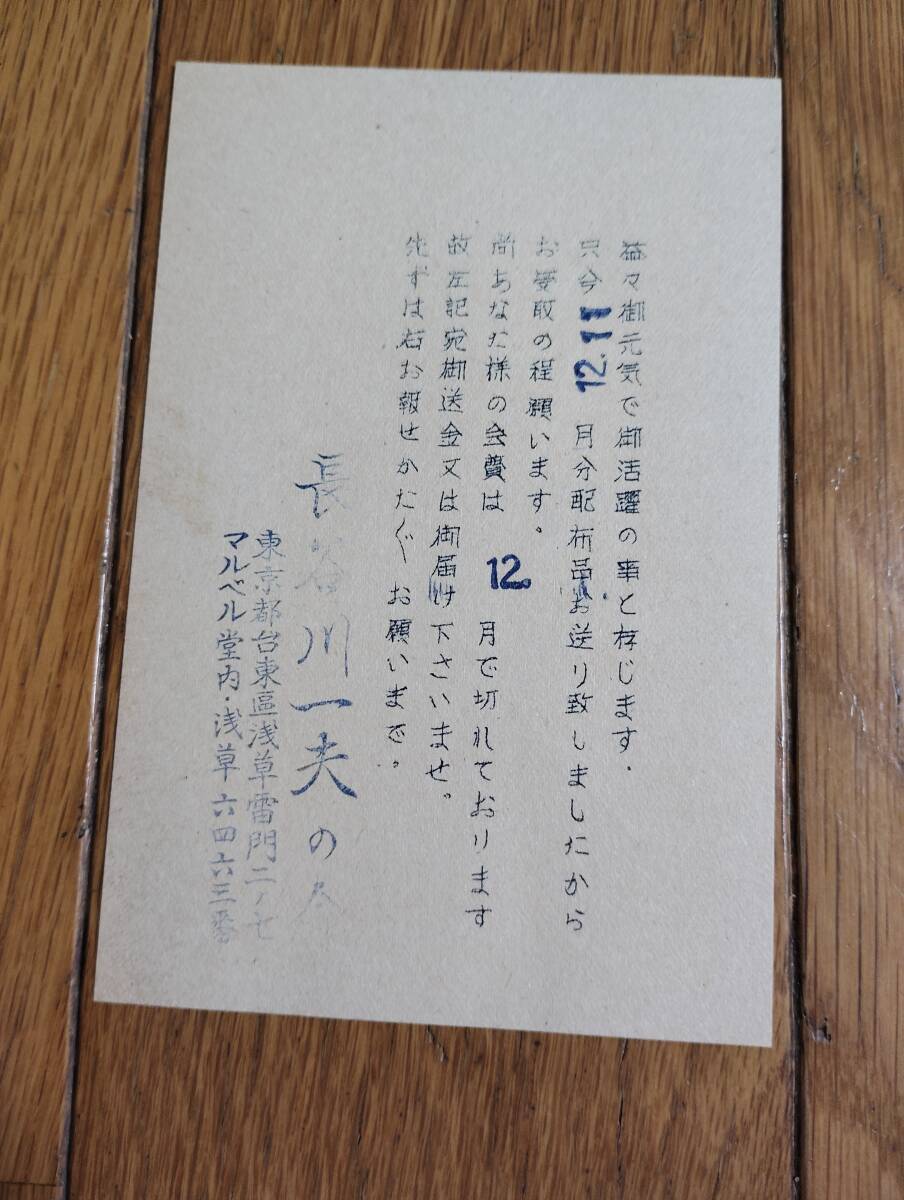 益々御元気で御活躍の事と存じます.
只今 12.11 月分配布品お送り致しましたから
お受取の程願います。
尚あなた様の会費は 12. 月で切れております
故左記宛御送金又は御届け下さいませ。
先ずは右お報せかたがたお願いまで。
長谷川一夫の会
東京都台東區浅草雷門二ノ七
マルベル堂内・浅草六四六三番